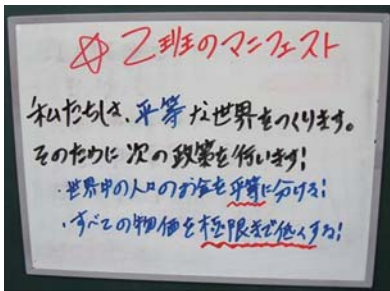 ☆2班のマニフェスト
私たちは、平等な世界をつくります。
そのために次の政策を行います!
・世界中の人口のお金を平等に分ける!
・すべての物価を極限まで低くする!